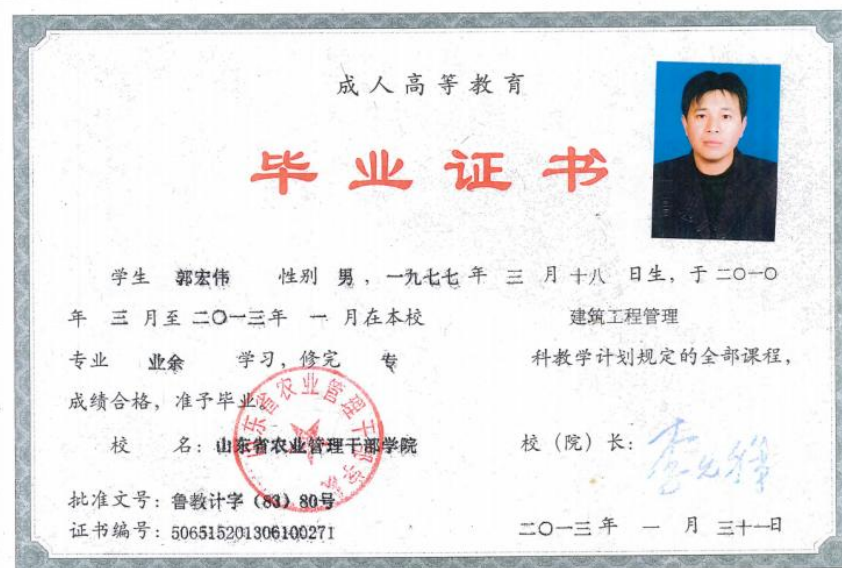 成人高等教育
毕业证书
学生 郭宏伟 性别 男，一九七七 年 三 月 十八 日生，于 二〇一〇
年 三 月至 二〇一三年 一 月在本校 建筑工程管理
专业 业余 学习，修完 专 科教学计划规定的全部课程，
成绩合格，准予毕业。
校 名：山东省农业管理干部学院 校（院）长：
批准文号：鲁教计字（83）80号
证书编号：506515201306100271 二〇一三 年 一 月 三十一日
山东省农业管理干部学院